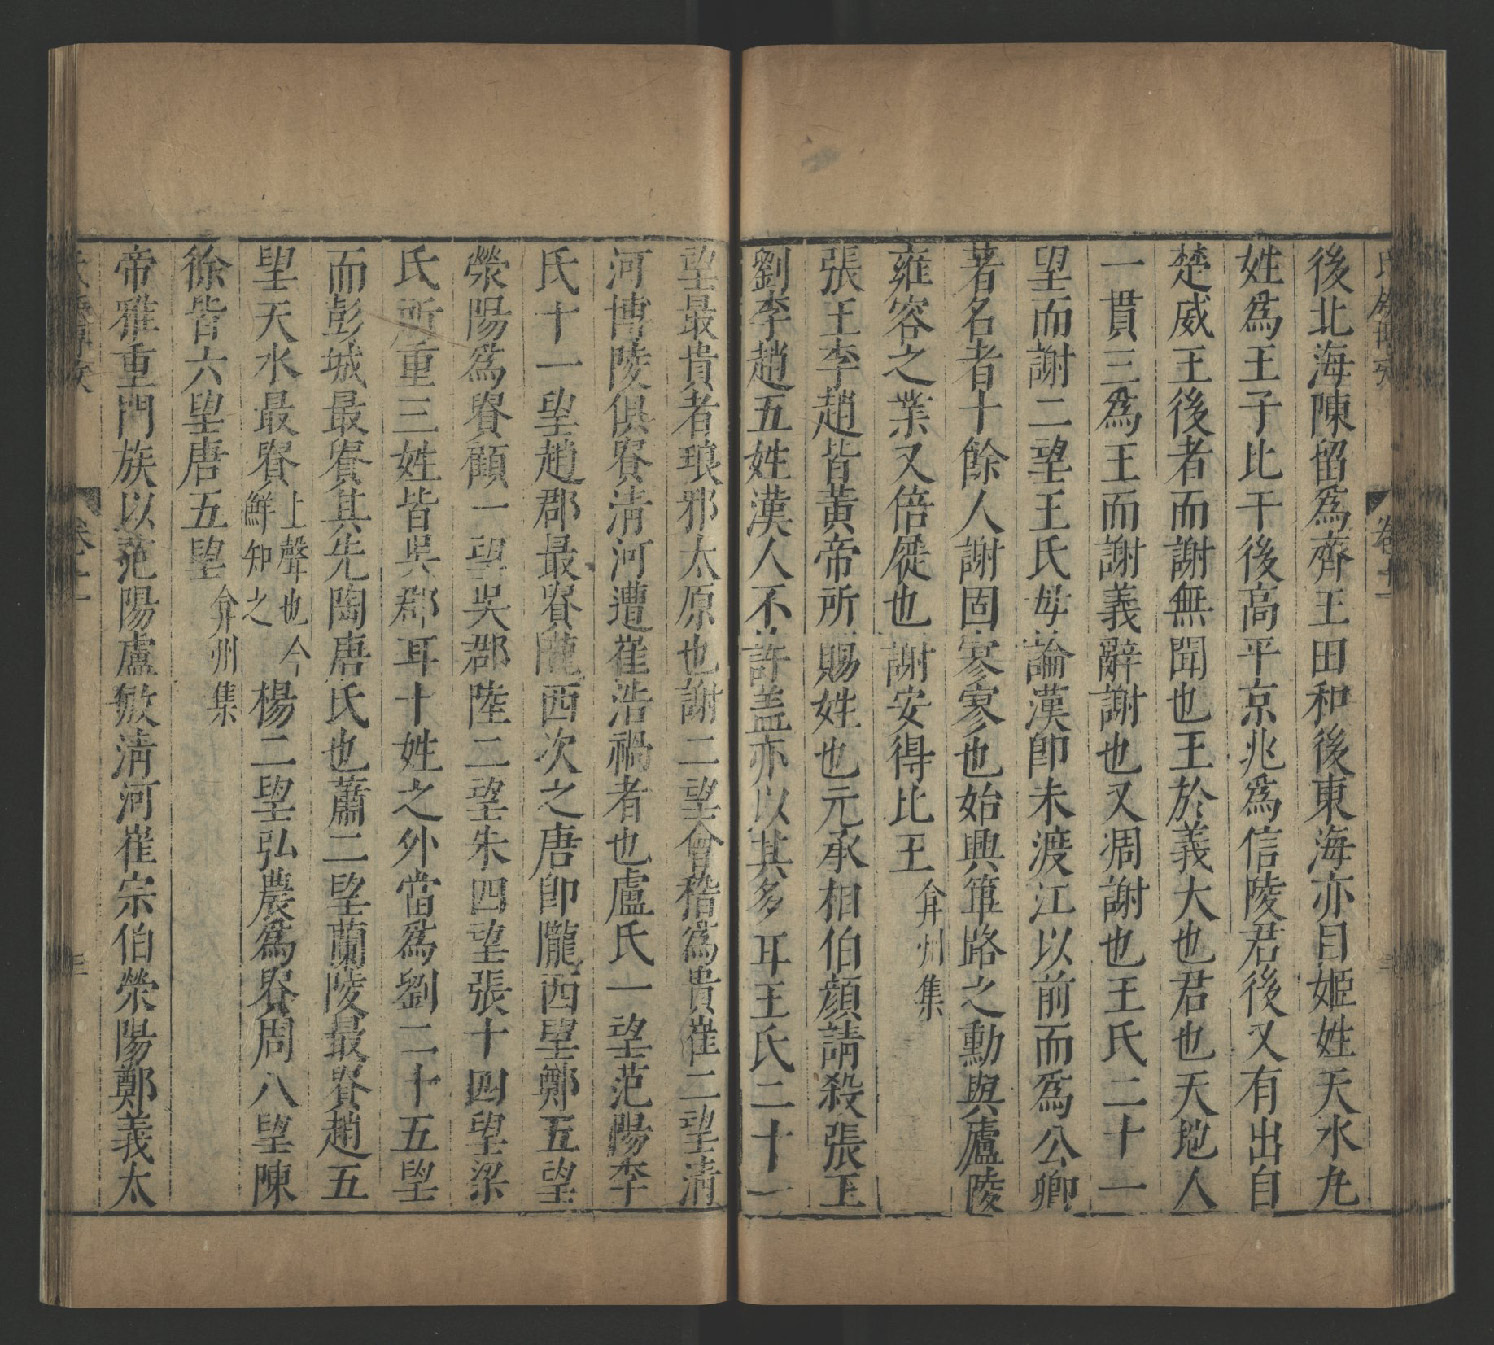 後北海陳留爲齊王田和後東海亦曰姬姓天水尤
姓爲王子比干後高平京兆爲信陵君後又有出自
楚威王後者而謝無聞也王於義大也君也天地人
一貫三爲王而謝義辭謝也又凋謝也王氏二十一
望而謝二望王氏毋論漢卽未渡江以前而爲公卿
著名者十餘人謝固寥寥也始興篳路之勳與廬陵
雍容之業又倍蓰也謝安得比王弇州集
張王李趙皆黃帝所賜姓也元丞相伯顔請殺張王
劉李趙五姓漢人不許盖亦以其多耳王氏二十一
望最貴者琅邪太原也謝二望會稽爲貴崔二望清
河博陵俱賽清河遭崔浩禍者也盧氏一望范陽李
氏十一望趙郡最賽隴西次之唐卽隴西望鄭五望
滎陽爲賽顧一望吳郡陸二望朱四望張十四望梁
氏所重三姓皆吳郡耳十姓之外當爲劉二十五望
而彭城最賽其先陶唐氏也蕭二望蘭陵最賽趙五
望天水最賽上聲也今鮮知之楊二望弘農爲賽周八望陳
徐皆六望唐五望弇州集
帝雅重門族以范陽盧敏清河崔宗伯滎陽鄭義太
卷十一